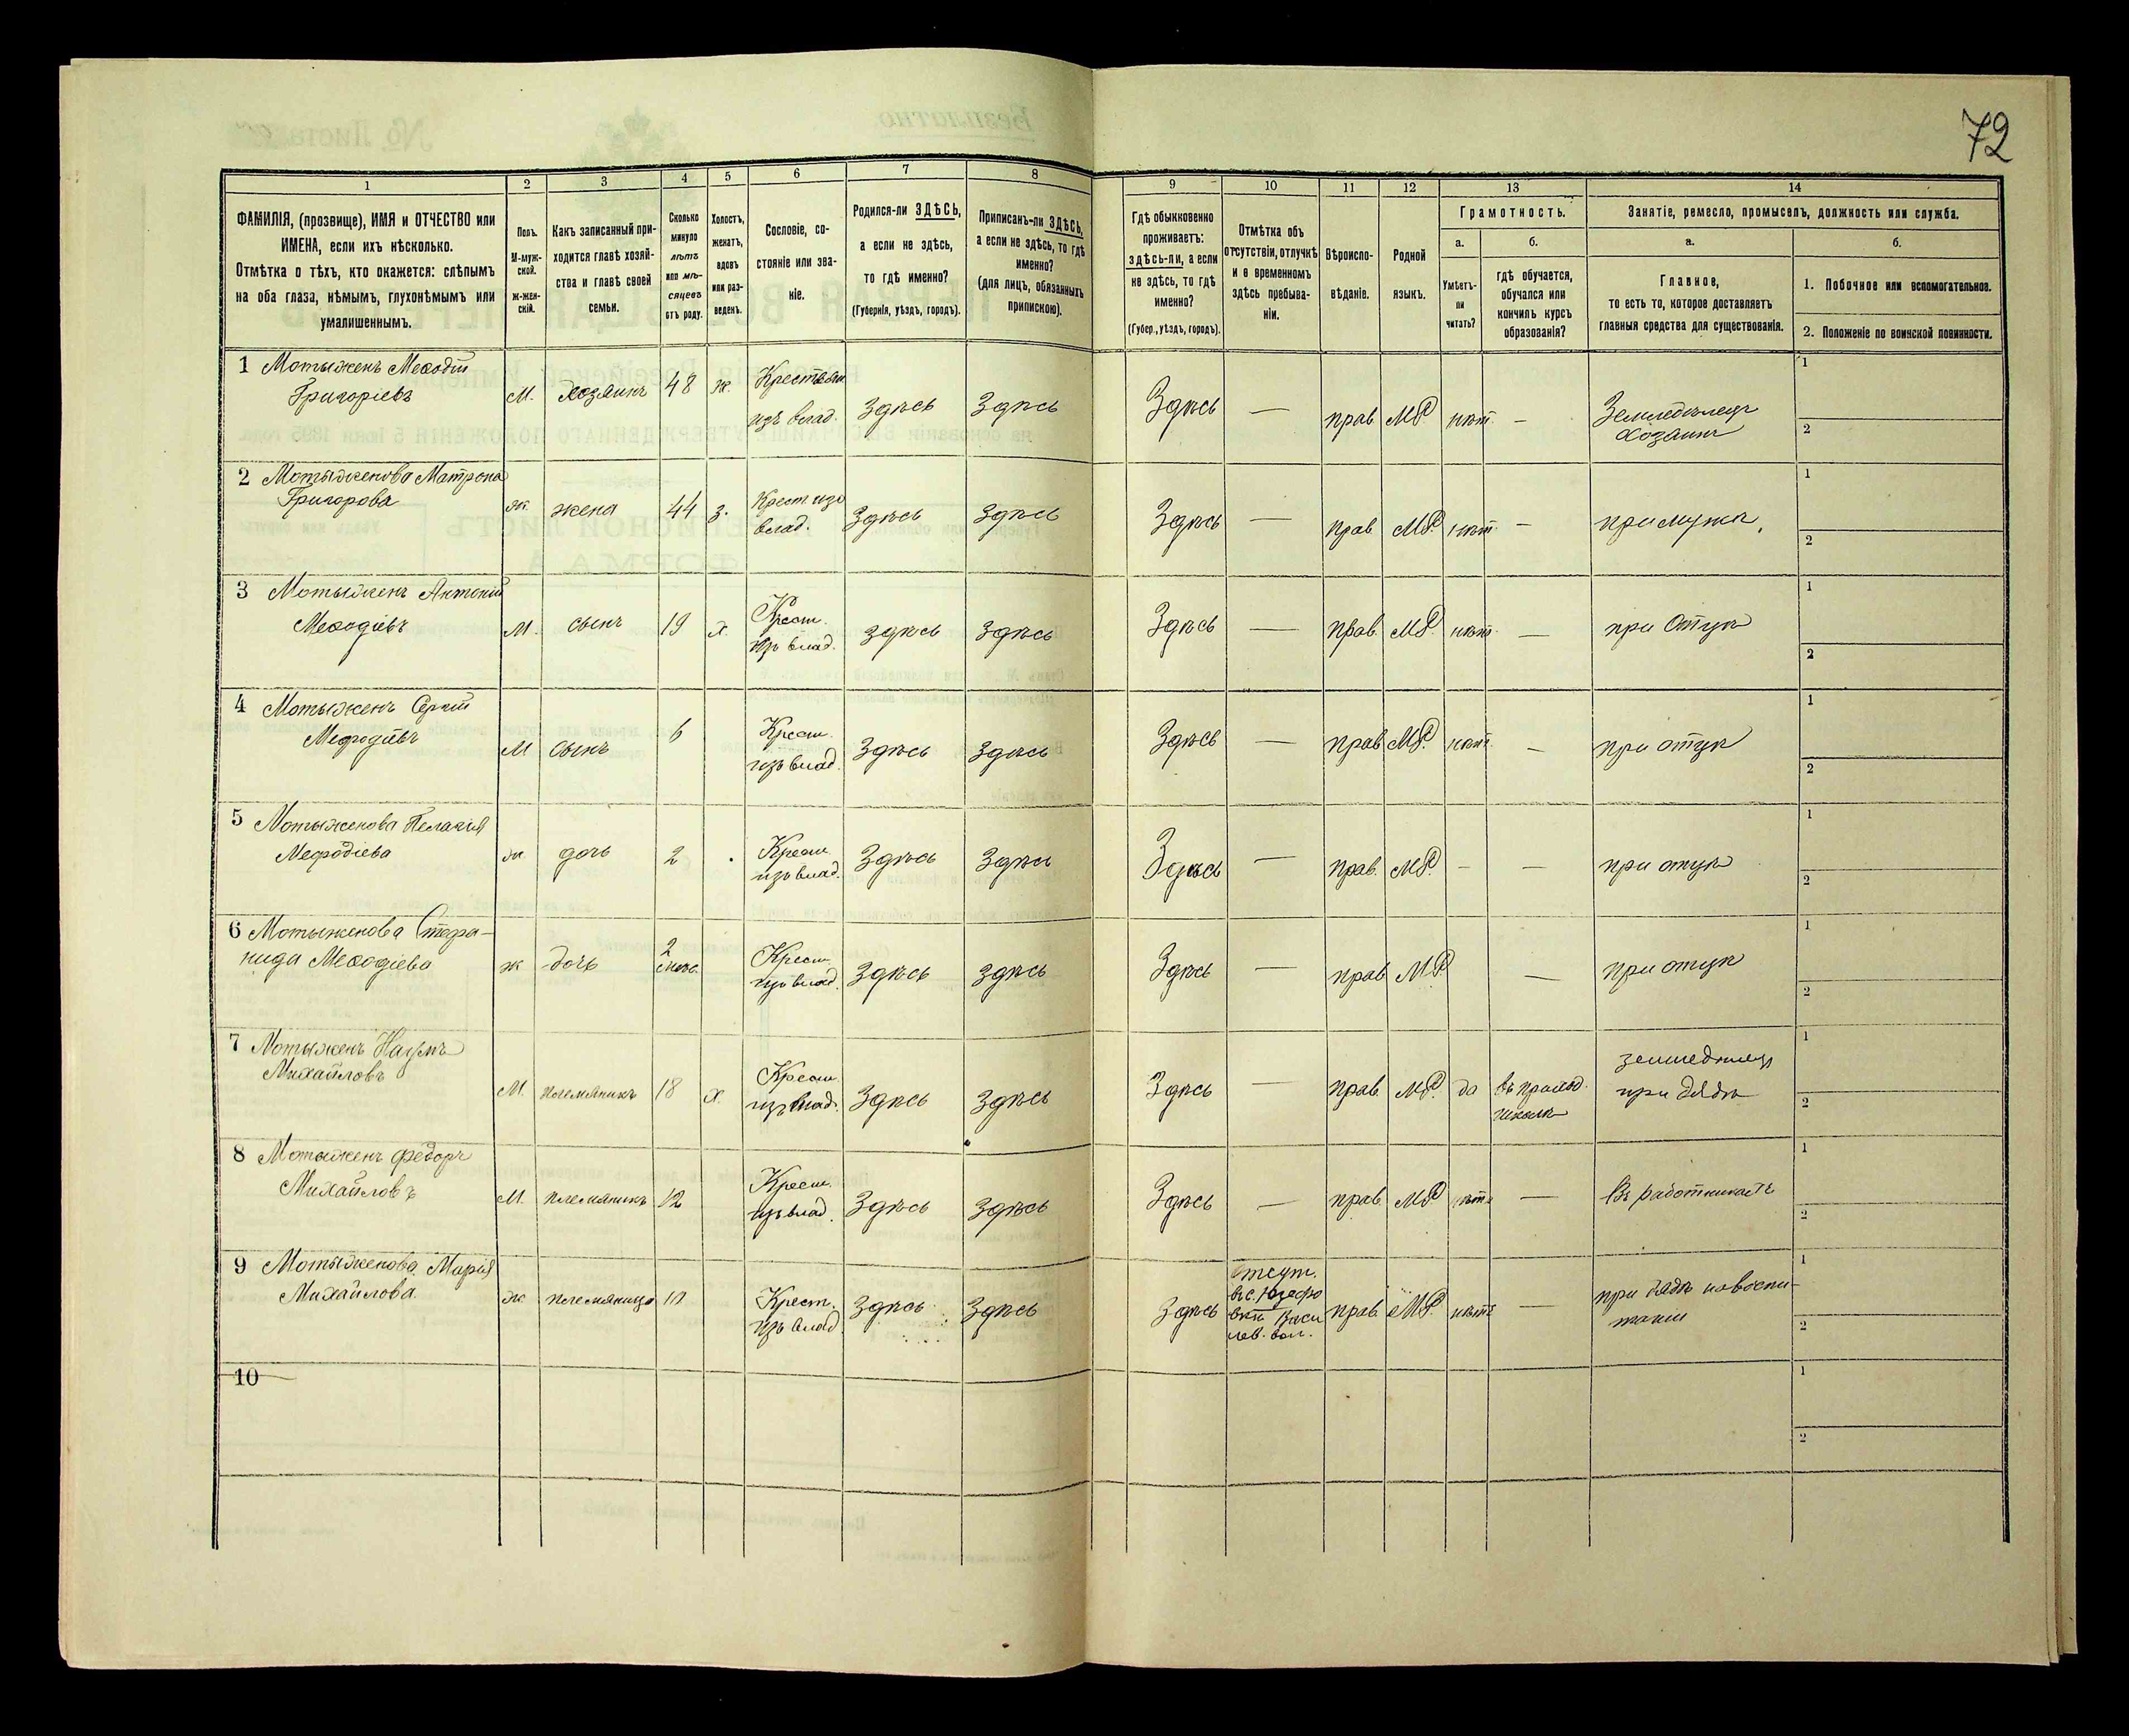 72
1
2
3
4
5
6
7
8
9
10
11
12
13
14
ФАМИЛІЯ, (прозвище), ИМЯ и ОТЧЕСТВО или
ИМЕНА, если ихъ нѣсколько.
Отмѣтка о тѣхъ, кто окажется: слѣпымъ
на оба глаза, нѣмымъ, глухонѣмымъ или
умалишеннымъ.
Полъ.
М-муж-
ской.
ж-жен-
скій.
Какъ записанный при-
ходится главѣ хозяй-
ства и главѣ своей
семьи.
Сколько
минуло
лѣтъ
или мѣ-
сяцевъ
отъ роду.
Холостъ,
женатъ,
вдовъ
или раз-
веденъ.
Сословіе, со-
стояніе или зва-
ніе.
Родился-ли ЗДѢСЬ,
а если не здѣсь,
то гдѣ именно?
(Губернія, уѣздъ, городъ).
Приписанъ-ли ЗДѢСЬ,
а если не здѣсь, то гдѣ
именно?
(для лицъ, обязанныхъ
припискою).
Гдѣ обыкновенно
проживаетъ:
здѣсь-ли, а если
не здѣсь, то гдѣ
именно?
(Губер., уѣздъ, городъ).
Отмѣтка объ
отсутствіи, отлучкѣ
и о временномъ
здѣсь пребыва-
ніи.
Вѣроиспо-
вѣданіе.
Родной
языкъ.
Грамотность.
а.
Умѣетъ-
ли
читать?
б.
гдѣ обучается,
обучался или
кончилъ курсъ
образованія?
Занятіе, ремесло, промыселъ, должность или служба.
а.
Главное,
то есть то, которое доставляетъ
главныя средства для существованія.
б.
1. Побочное или вспомогательное.
2. Положеніе по воинской повинности.
1 Мотыженъ Меѳодій
Григоріевъ
М. хозяинъ 48 ж.
Крестьян
изъ влад. Здѣсь Здѣсь Здѣсь — прав. МР нѣт —
Земледѣлецъ
хозяинъ
1
2
2 Мотыженова Матрона
Григорова
ж. жена 44 з.
Крест. изъ
влад. Здѣсь Здѣсь Здѣсь — прав. МР. нѣт. — при мужѣ
1
2
3 Мотыженъ Антоній
Меѳодіевъ
М. сынъ 19 х.
Крест.
изъ влад. здѣсь здѣсь Здѣсь — прав. МР. нѣт. — при отцѣ
1
2
4 Мотыженъ Сергій
Мефодіевъ
М сынъ 6
Крест.
изъ влад. Здѣсь Здѣсь Здѣсь — прав. МР. нѣт. — при отцѣ
1
2
5 Мотыженова Пелагія
Мефодіева
ж дочь 2
Крест.
изъ влад. Здѣсь Здѣсь Здѣсь — прав. МР. - — при отцѣ
1
2
6 Мотыженова Стефа-
нида Меѳодіева
ж дочь 2
Крест.
изъ влад. Здѣсь здѣсь Здѣсь — прав. МР. — при отцѣ
1
2
7 Мотыженъ Наумъ
Михайловъ
М. племянникъ 18 х.
Крест.
изъ влад. Здѣсь здѣсь Здѣсь — прав. МР. да
въ приход.
школѣ
земледѣлецъ
при дядѣ
1
2
8 Мотыженъ Федоръ
Михайловъ
М. племянникъ 12
Крест.
изъ влад. Здѣсь Здѣсь Здѣсь — прав. МР нѣт. — Въ работникахъ
1
2
9 Мотыженова Марія
Михайлова
ж. племяница
Крест.
изъ влад. Здѣсь Здѣсь Здѣсь
отсут.
въ с. Юзефо
вкѣ Васи
лев. вол.
прав. МР. нѣтъ —
при дядѣ на воспи-
таніи
1
2
10
1
2